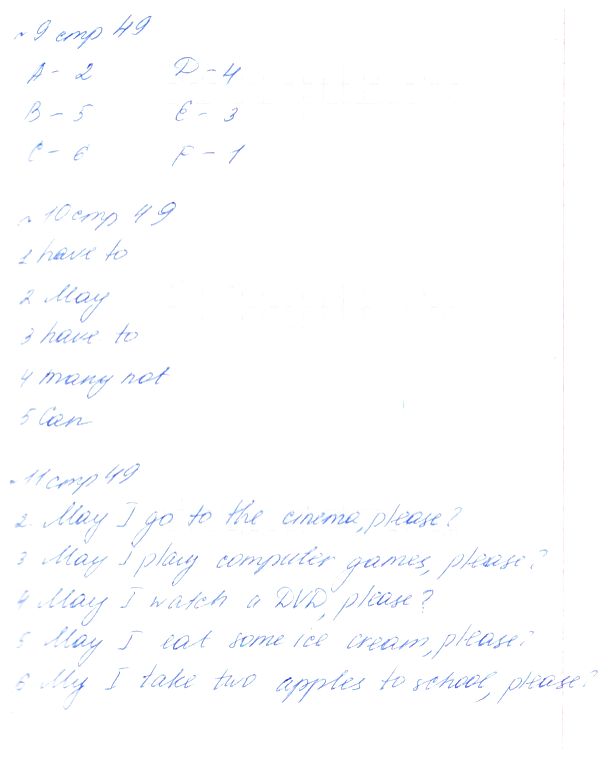 №9 стр. 49
A - 2 D - 4
B - 5 E - 3
C - 6 F - 1
№10 стр 49
1 have to
2 May
3 have to
4 many not
5 Can
№11 стр 49
2 May I go to the cinema, please?
3 May I play computer games, please?
4 May I watch a DVD, please?
5 May I eat some ice cream, please?
6 My I take two apples to school, please?